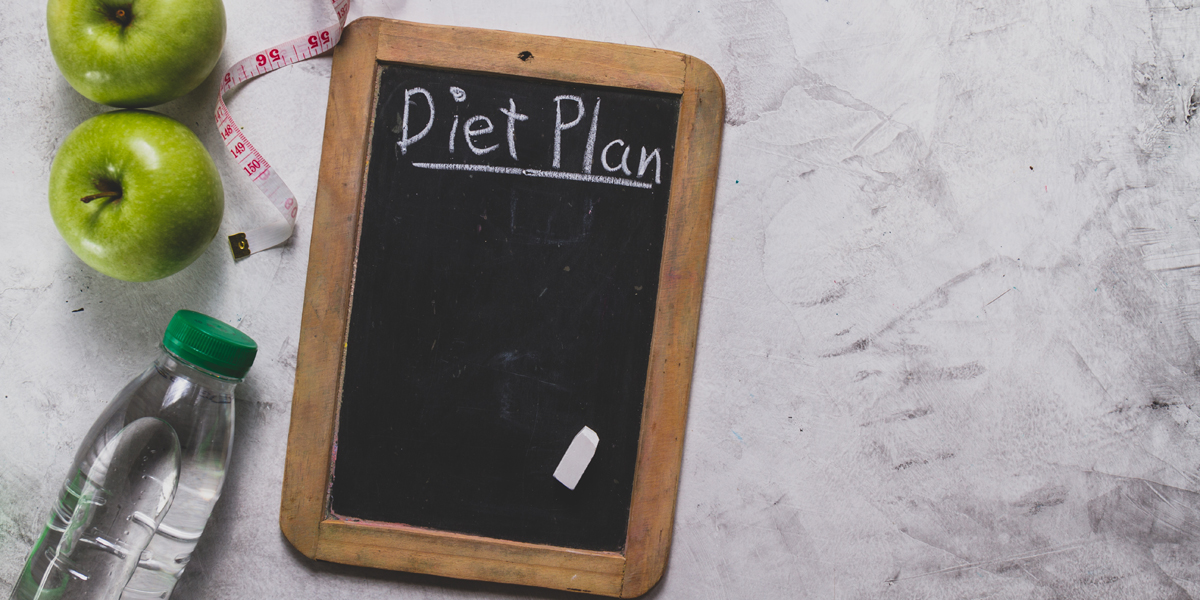 Diet Plan
55
56
148
149
150